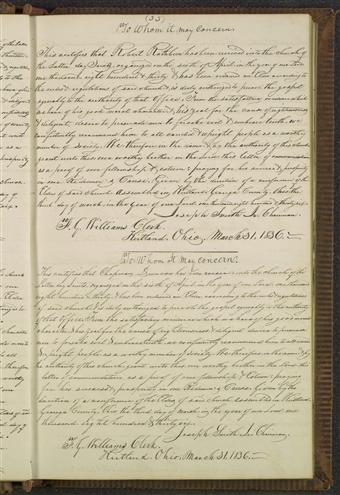 (33)
To Whom it may concern.
This certifies that Robert Rathbun has been received into the church of
the Latter day Saints, organized on the sixth of April in the year of our Lord
one thousand eight hundred & thirty & has been ordained an Elder according to
the rules & regulations of said church, & is duly authorized to preach the gospel
agreeably to the authority of that office. From the satisfactory evidence which
we have of his good moral character, & his zeal for the cause of righteousness
& diligent desire to persuade men to forsake evil & embrace truth, we
confidently recommend him to all candid & upright people as a worthy
member of Society. We therefore in the name & by the authority of this church
grant unto this our worthy brother in the Lord this letter of commendation
as a proof of our fellowship & esteem: praying for his success & prosperity
in our Redeemer's Cause. Given by the direction of a conference of the
Elders of said church assembled in Kirtland Geauga County, Ohio the
third day of march in the year of our Lord one thousand eight hundred & thirty six.
Joseph Smith Jr. Chairman.
F. G. Williams Clerk.
Kirtland, Ohio, March 31, 1836.
To Whom it may concern.
This certifies that Chapman Duncan has been received into the church of the
Latter day Saints, organized on the sixth of April in the year of our Lord one thousand
eight hundred & thirty & has been ordained an Elder according to the rules & regulations
of said church & is duly authorized to preach the gospel agreeably to the authority
of that office. From the satisfactory evidence which we have of his good moral
character & his zeal for the cause of righteousness & diligent desire to persuade
men to forsake evil & embrace truth, we confidently recommend him to all candid
& upright people as a worthy member of society. We therefore in the name & by
the authority of this church grant unto this our worthy brother in the Lord this
letter of commendation as a proof of our fellowship & esteem: praying
for his success & prosperity in our Redeemer's Cause. Given by the
direction of a conference of the Elders of said church assembled in Kirtland
Geauga County, Ohio the third day of march in the year of our Lord one
thousand eight hundred & thirty six.
Joseph Smith Jr. Chairman.
F. G. Williams Clerk.
Kirtland, Ohio, March 31. 1836.